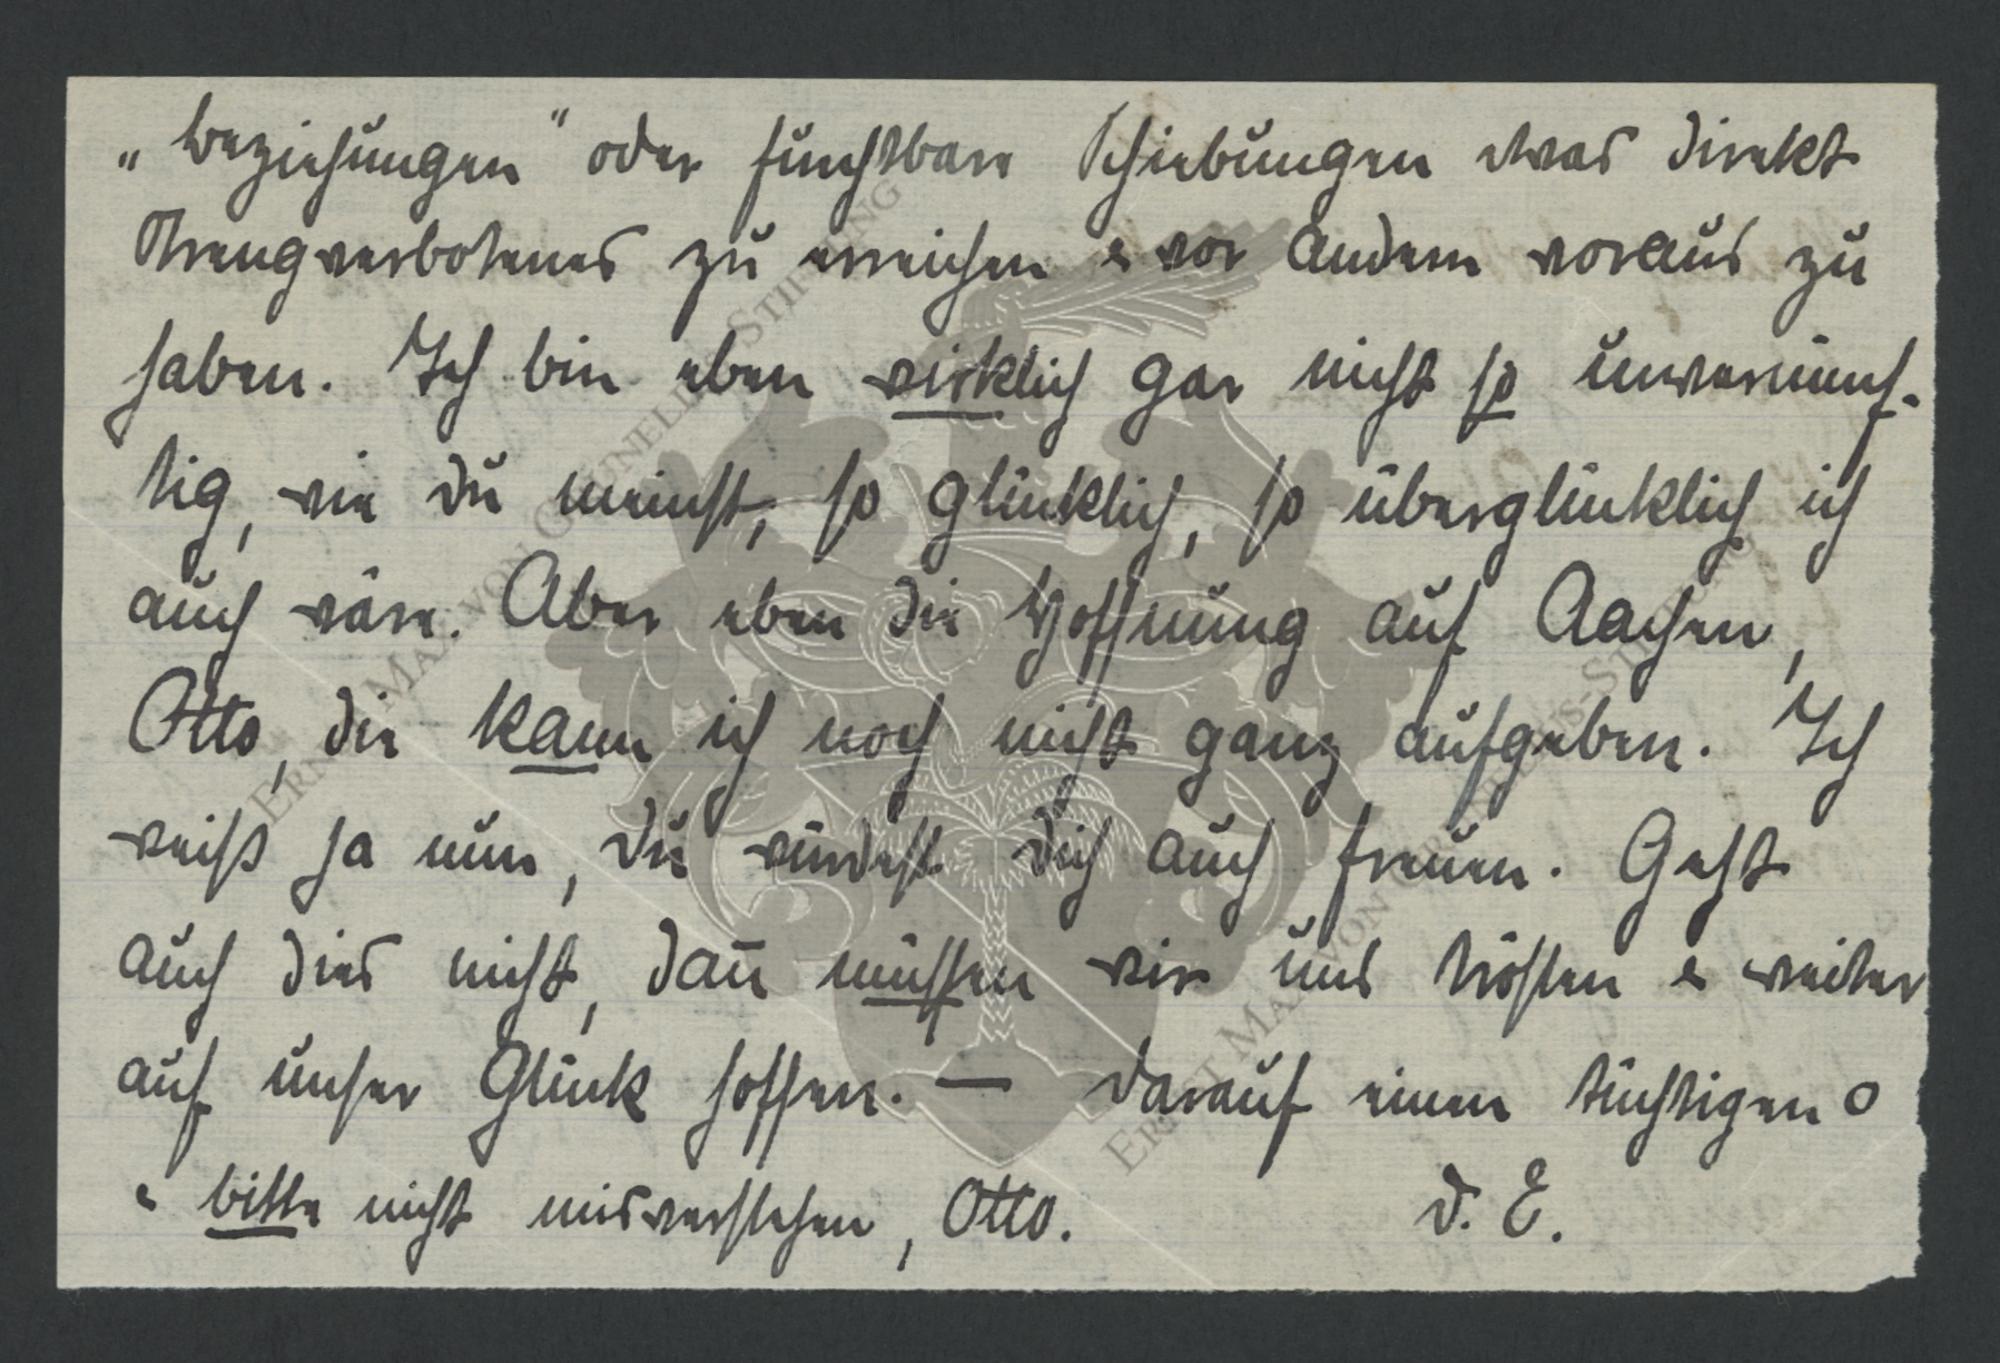 „Beziehungen" oder furchtbare Schiebungen etwas direkt
Strengverbotenes zu erreichen & vor andern voraus zu
haben. Ich bin eben wirklich gar nicht so unvernünf-
tig, wie du meinst, so glücklich, so überglücklich ich
auch wäre. Aber eben die Hoffnung auf Aachen,
Otto, die kann ich noch nicht ganz aufgeben. Ich
weiß ja nun, du würdest dich auch freuen. Geht
auch dies nicht, dan̄ müssen wir uns trösten & weiter
auf unser Glück hoffen. — Darauf einen tüchtigen o
& bitte nicht misverstehen, Otto. D. E.
ERNST MAX VON GRUNELIUS-STIFTUNG
ERNST MAX VON GRUNELIUS-STIFTUNG